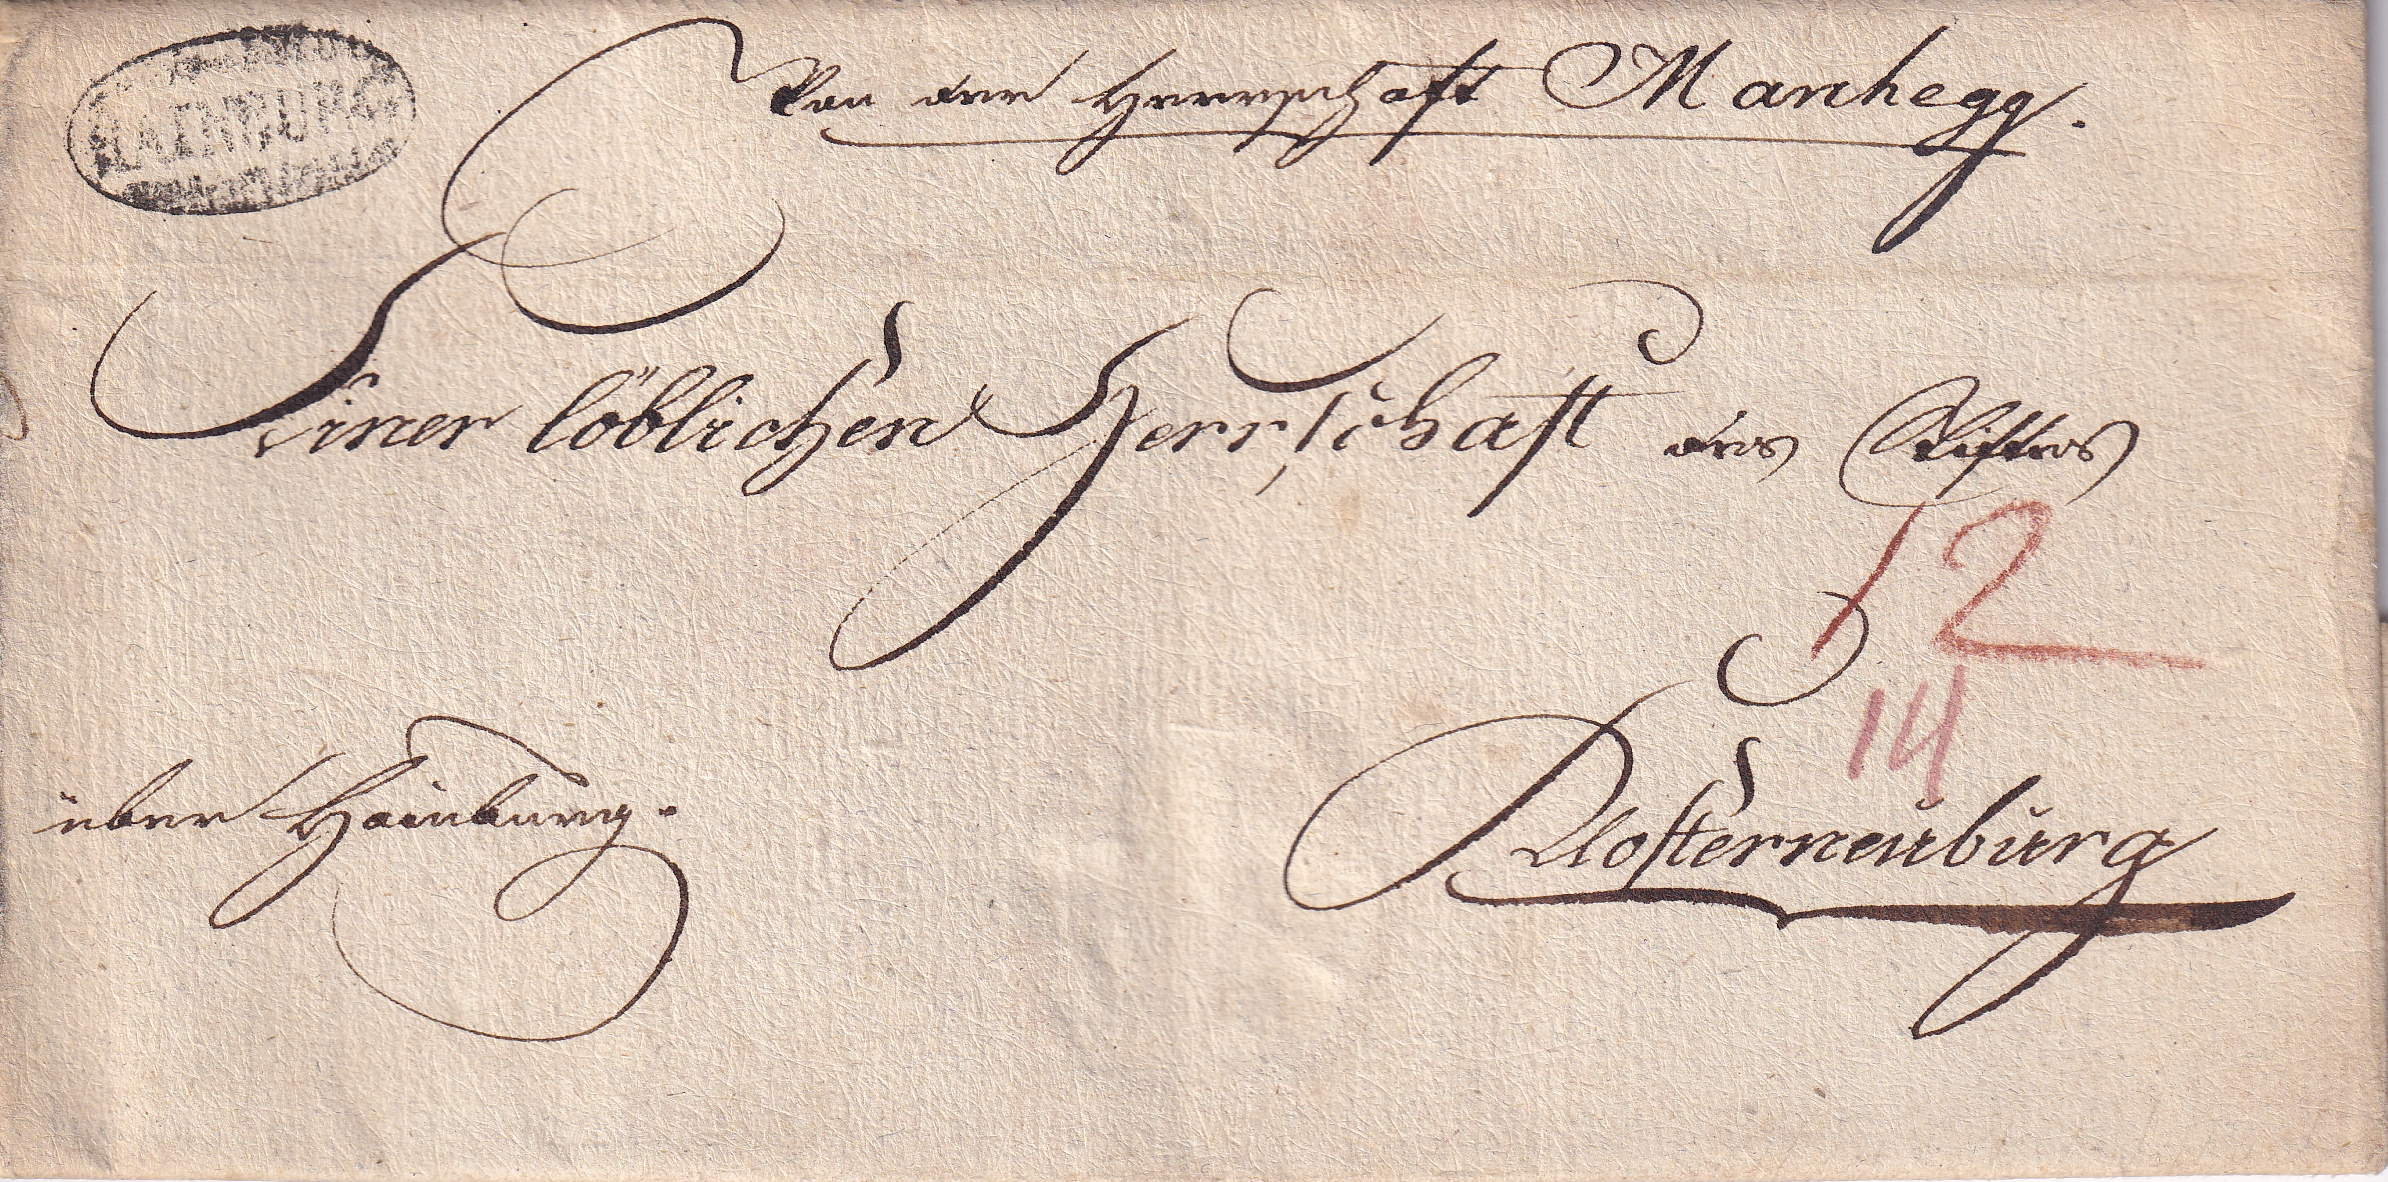 HAINBURG
Von der Herrschaft Manhegg.
Einer löblichen Herrschaft des Stiftes
12
14
über Hainburg.
Klosterneuburg